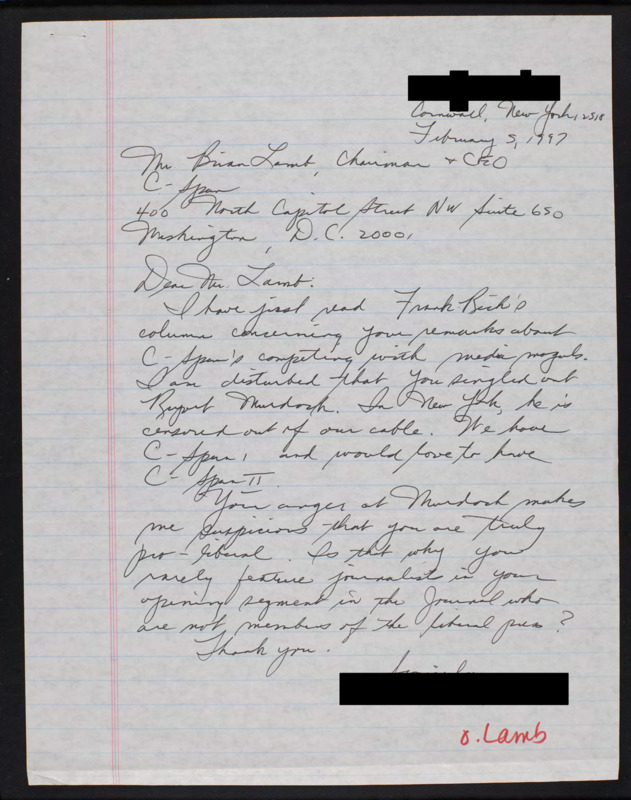 Cornwall, New York, 12518
February 5, 1997
Mr Brian Lamb, Chairman + CEO
C-Span
400 North Capitol Street NW Suite 650
Washington, D.C. 20001
Dear Mr. Lamb:
I have just read Frank Rich's
column concerning your remarks about
C-Span's competing with media moguls.
I am disturbed that you singled out
Rupert Murdoch. In New York, he is
censored out of our cable. We have
C-Span I and would love to have
C-Span II.
Your anger at Murdoch makes
me suspicious that you are truly
pro-liberal. Is that why you
rarely feature journalists in your
opening segment in the Journal who
are not members of the liberal press?
Thank you.
Lamb